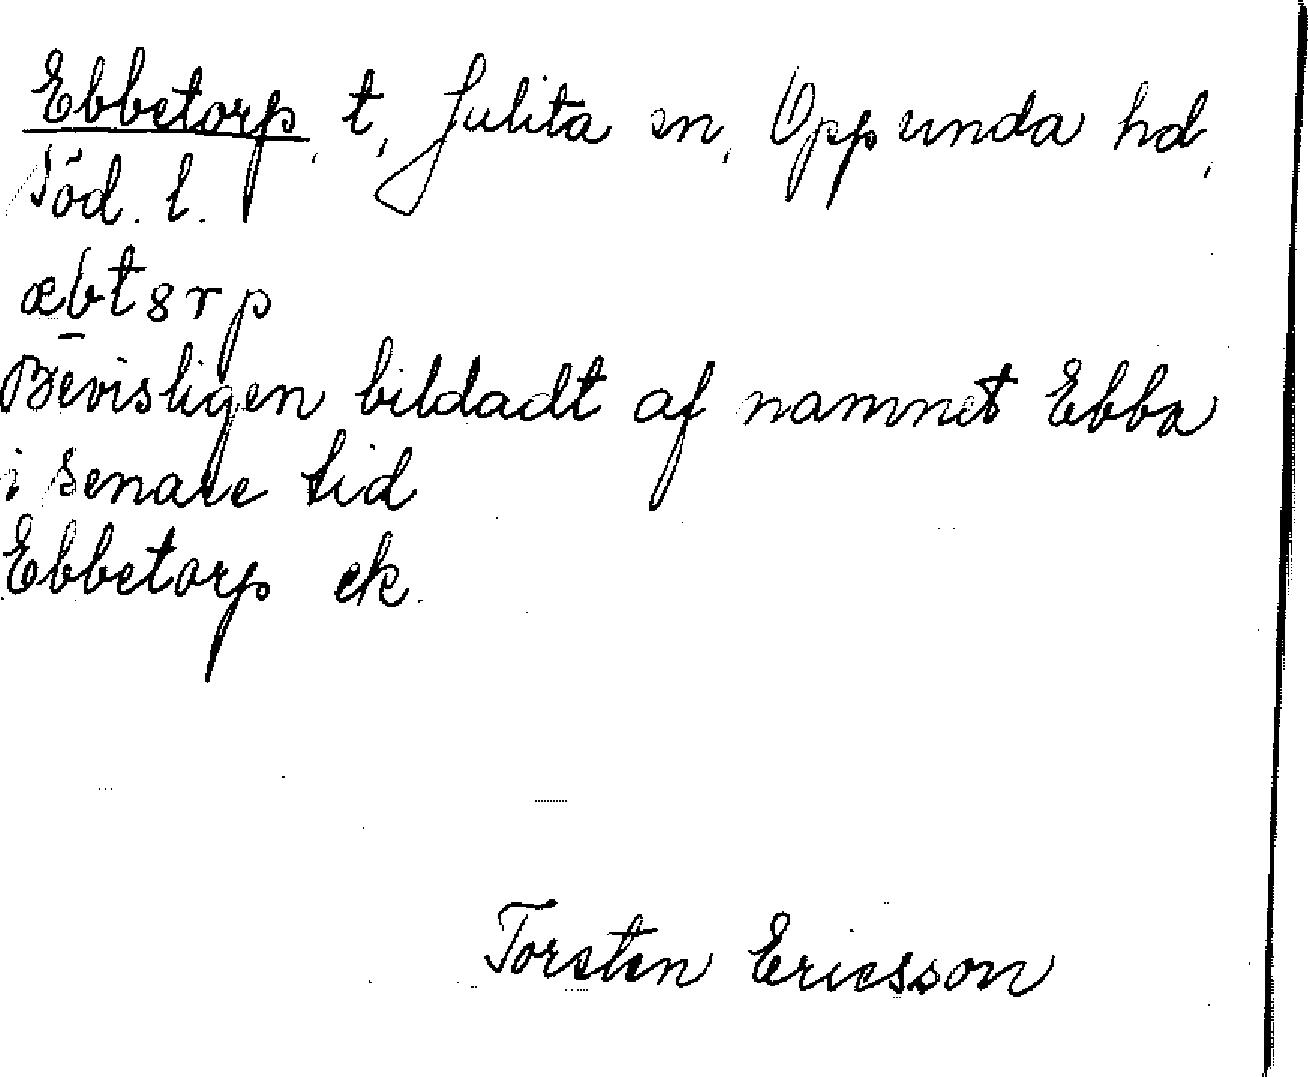 Ebbetorp, t, Julita sn, Oppunda hd,
Söd. l.
æbt8rp
Bevisligen bildadt af namnet Ebba
i senare tid
Ebbetorp ek.
Torsten Ericsson